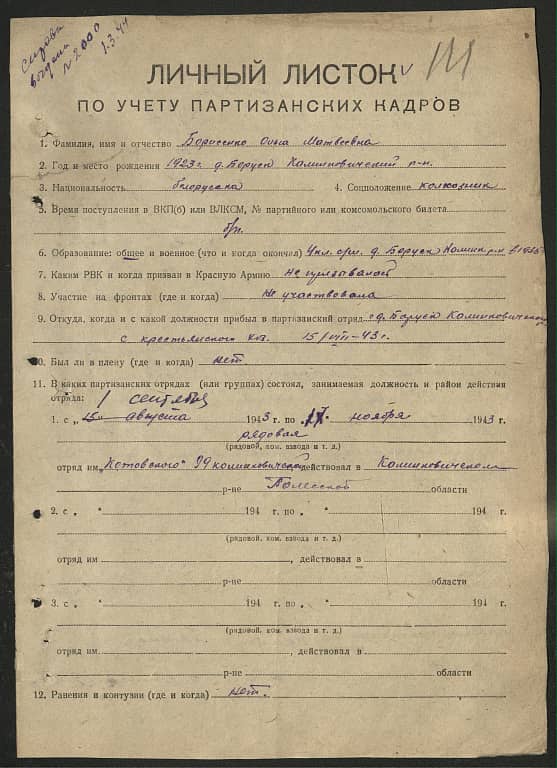 справка
выдана
№ 2000
1.3.44
ЛИЧНЫЙ ЛИСТОК
ПО УЧЕТУ ПАРТИЗАНСКИХ КАДРОВ
1. Фамилия, имя и отчество Борисенко Ольга Матвеевна
2. Год и место рождения 1923 г. д. Боруск Калинковичский р-н.
3. Национальность белоруска 4. Соцположение колхозник
5. Время поступления в ВКП(б) или ВЛКСМ, № партийного или комсомольского билета
б/п.
6. Образование: общее и военное (что и когда окончил) 4 кл. д. Боруск Калинк. р-н в 1935
7. Каким РВК и когда призван в Красную Армию не призывалась
8. Участие на фронтах (где и когда) Не участвовала
9. Откуда, когда и с какой должности прибыл в партизанский отряд с д. Боруск Калинковичского
с крестьянского хоз. 15/VIII-43 г.
10. Был ли в плену (где и когда) нет
11. В каких партизанских отрядах (или группах) состоял, занимаемая должность и район действия
отряда: 1 сентября
1. с „ 15 августа 1943 г. по „17. ноября 1943 г.
рядовая
(рядовой, ком. взвода и т. д.)
отряд им „Котовского" 99 калинковической действовал в Калинковическом
р-не Полесской области
2. с „ " 194 г. по „ " 194 г.
(рядовой, ком. взвода и т. д.)
отряд им , действовал в
р-не области
3. с „ " 194 г. по „ " 194 г.
(рядовой, ком. взвода и т. д.)
отряд им , действовал в
р-не области
12. Ранения и контузии (где и когда) нет.